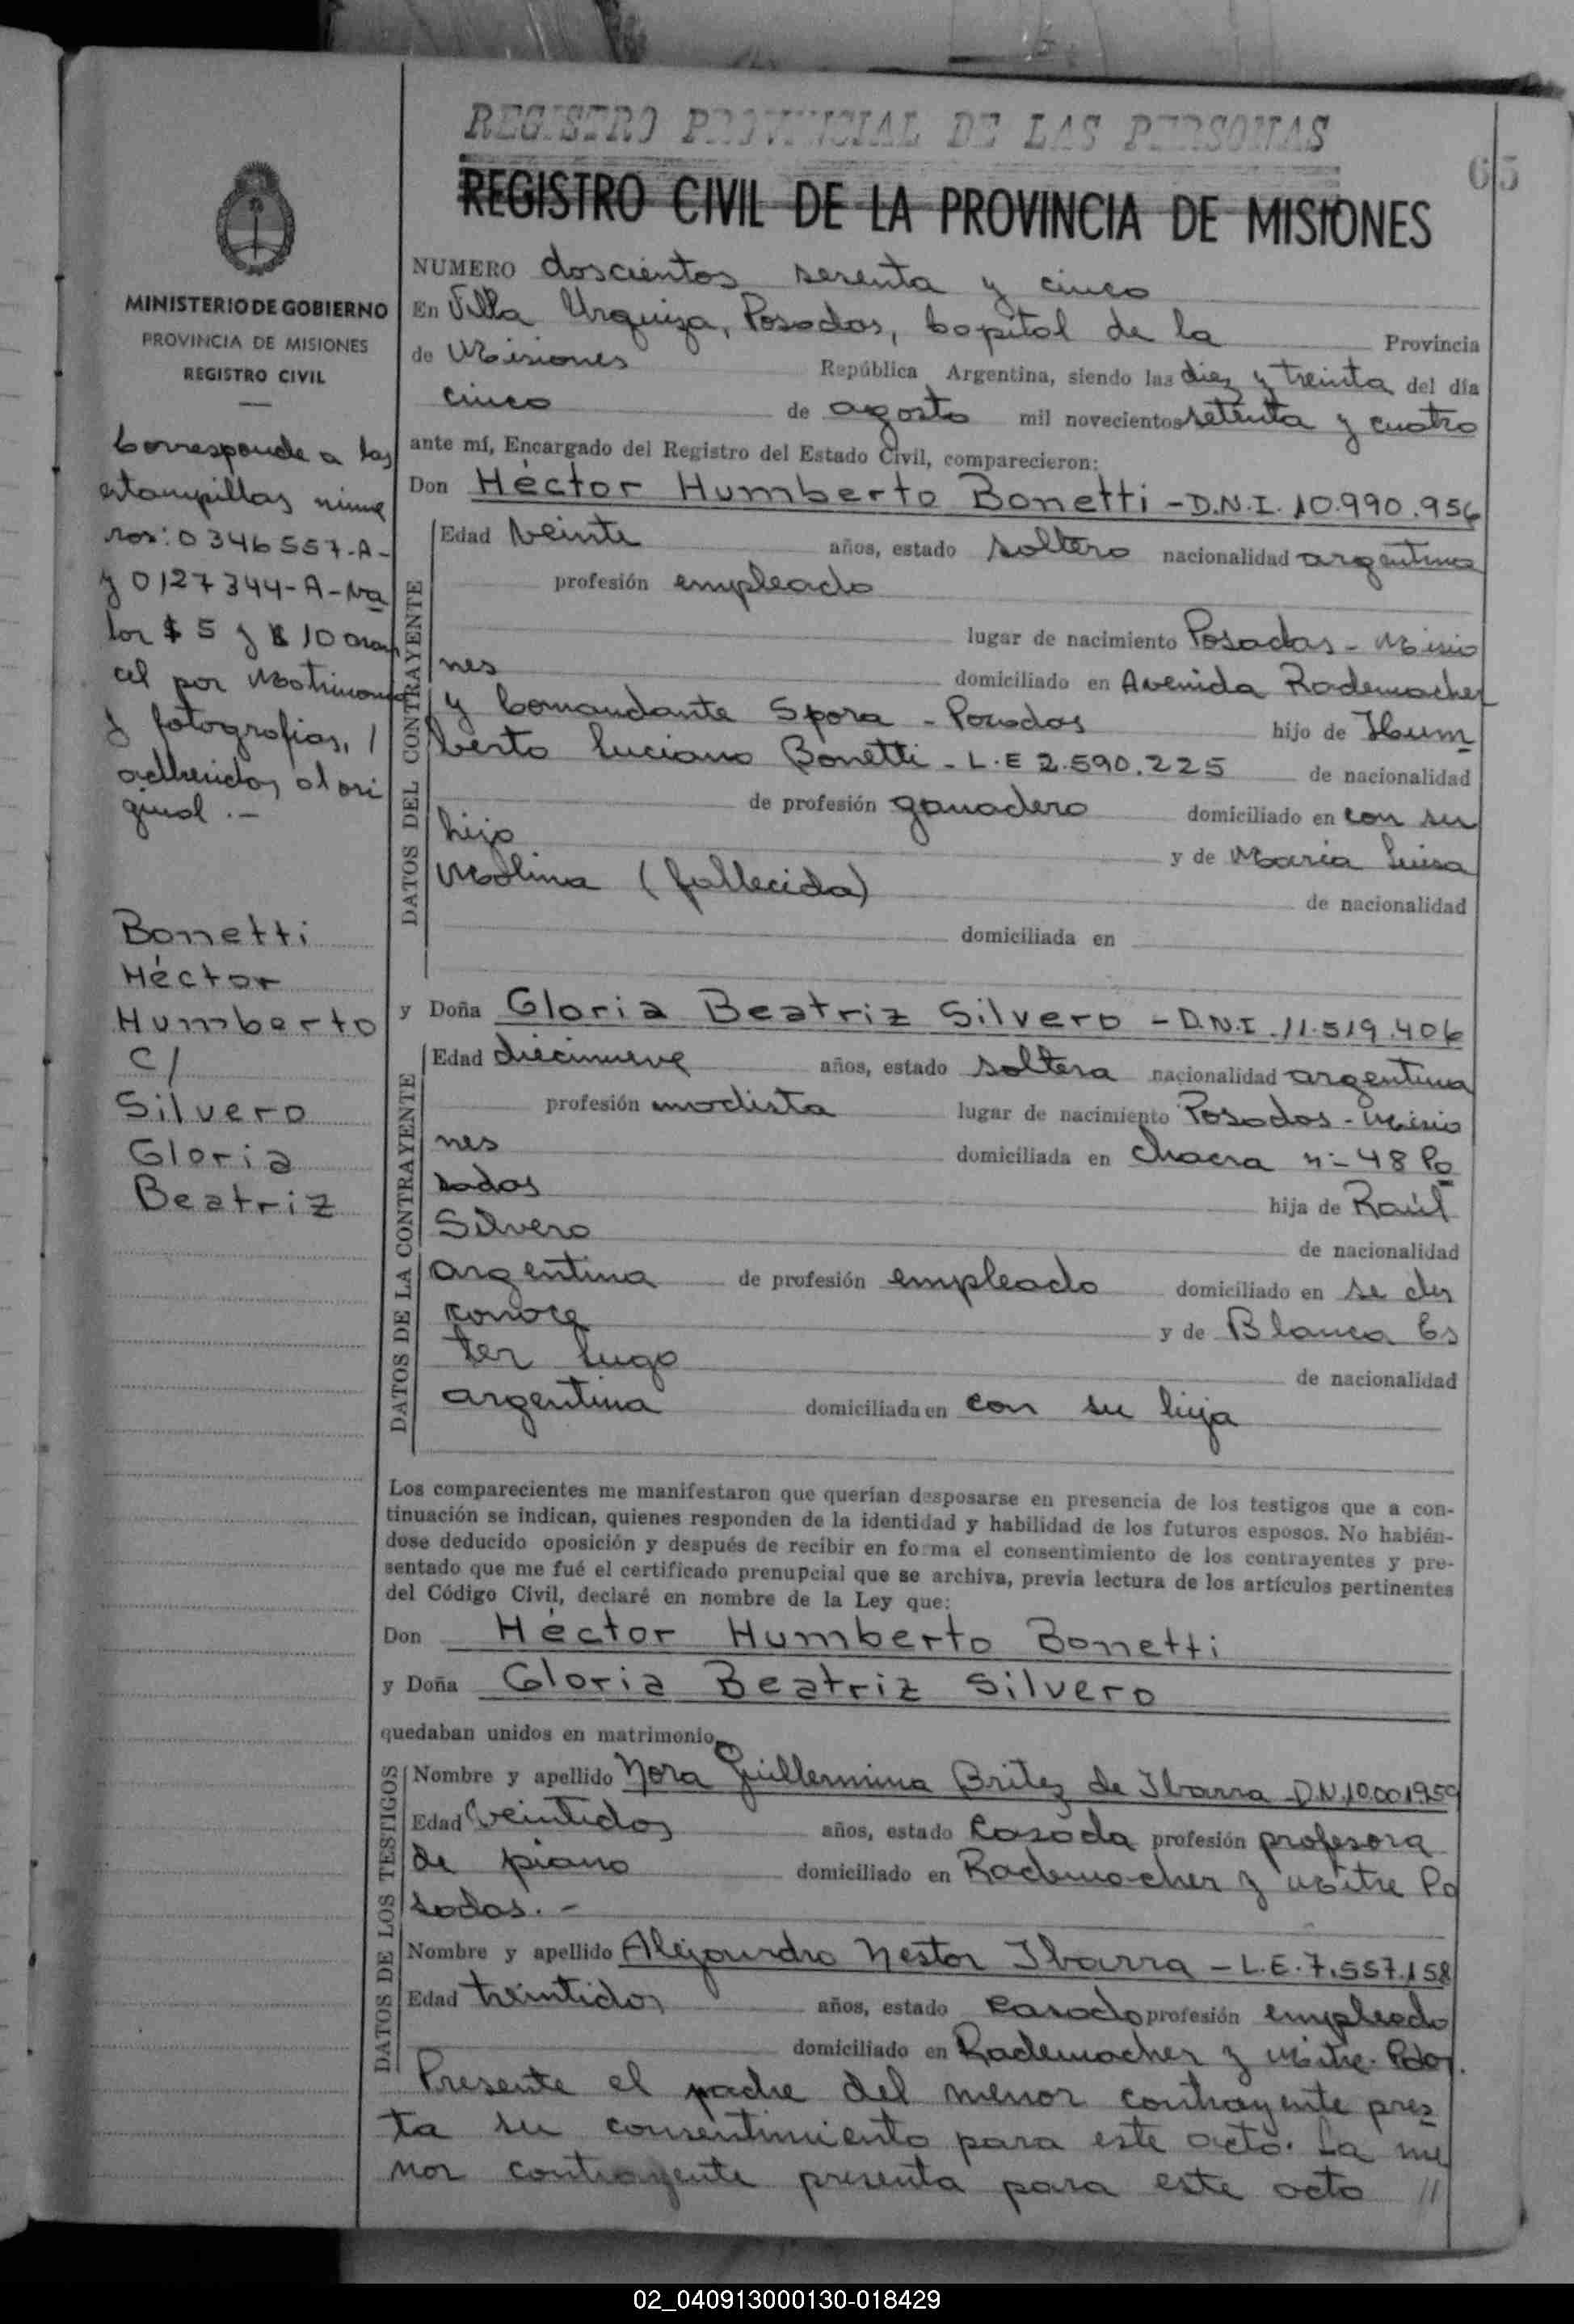 REGISTRO PROVINCIAL DE LAS PERSONAS
65
REGISTRO CIVIL DE LA PROVINCIA DE MISIONES
MINISTERIO DE GOBIERNO
PROVINCIA DE MISIONES
REGISTRO CIVIL
Corresponde a las
estampillas núme
ros: 0346557-A-
y 0127344-A-Va
lor $ 5 y $ 10 aran
cel por Matrimonio
y fotografias, /
adheridas al ori
ginal.-
Bonetti
Héctor
Humberto
C/
Silvero
Gloria
Beatriz
NUMERO doscientos sesenta y cinco
En Villa Urquiza, Posadas, Capital de la Provincia
de Misiones República Argentina, siendo las diez y treinta del día
cinco de agosto mil novecientos setenta y cuatro
ante mí, Encargado del Registro del Estado Civil, comparecieron:
Don Héctor Humberto Bonetti - D.N.I. 10.990.956
DATOS DEL CONTRAYENTE
Edad veinte años, estado soltero nacionalidad argentina
profesión empleado
lugar de nacimiento Posadas - Misio
nes domiciliado en Avenida Rademacher
y Comandante Spora - Posadas hijo de Hum
berto Luciano Bonetti - L.E 2.590.225 de nacionalidad
de profesión ganadero domiciliado en con su
hijo y de María Luisa
Molina (fallecida) de nacionalidad
domiciliada en
y Doña Gloria Beatriz Silvero - D.N.I. 11.519.406
DATOS DE LA CONTRAYENTE
Edad diecinueve años, estado soltera nacionalidad argentina
profesión modista lugar de nacimiento Posadas - Misio
nes domiciliada en Chacra n:- 48 Po
sadas hija de Raúl
Silvero de nacionalidad
argentina de profesión empleado domiciliado en se des
conoce y de Blanca Es
ter Lugo de nacionalidad
argentina domiciliada en con su hija
Los comparecientes me manifestaron que querían desposarse en presencia de los testigos que a con-
tinuación se indican, quienes responden de la identidad y habilidad de los futuros esposos. No habién-
dose deducido oposición y después de recibir en forma el consentimiento de los contrayentes y pre-
sentado que me fué el certificado prenupcial que se archiva, previa lectura de los artículos pertinentes
del Código Civil, declaré en nombre de la Ley que:
Don Héctor Humberto Bonetti
y Doña Gloria Beatriz Silvero
quedaban unidos en matrimonio
DATOS DE LOS TESTIGOS
Nombre y apellido Nora Guillermina Britez de Ibarra - D.N.10.001959
Edad veintidos años, estado Casada profesión profesora
de piano domiciliado en Rademacher y Mitre Po
sadas.-
Nombre y apellido Alejandro Nestor Ibarra - L.E. 7.557.158
Edad treintidos años, estado Casado profesión empleado
domiciliado en Rademacher y Mitre. Pdas.
Presente el padre del menor contrayente pres
ta su consentimiento para este acto. La me
nor contrayente presenta para este acto //
02_040913000130-018429